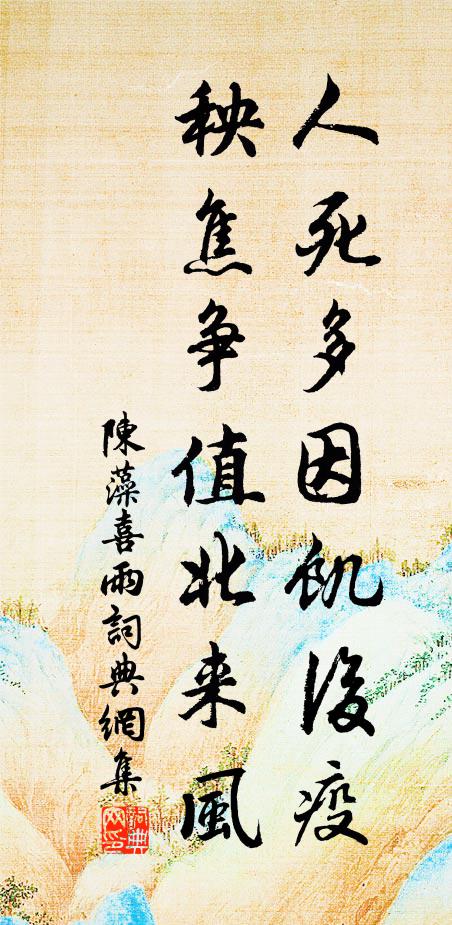 人死多因飢後疫
秧焦争值北来風
陳藻喜雨詞典網集